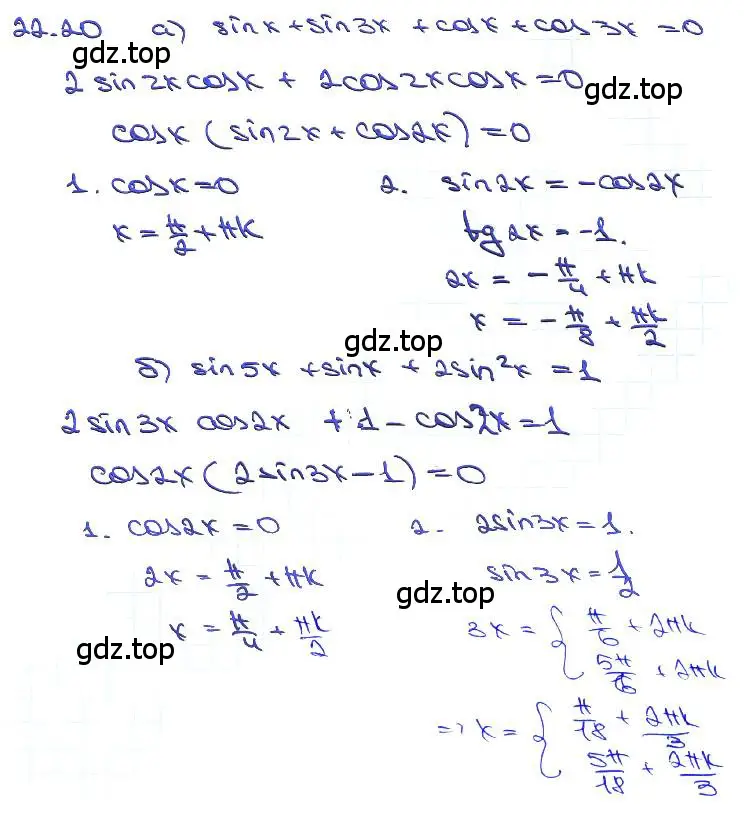 22.20 а) sinx + sin3x + cosx + cos3x = 0
gdz.top
2 sin2x cosx + 2cos2x cosx = 0
gdz.top
cosx (sin2x + cos2x) = 0
1. cosx = 0
2. sin2x = -cos2x
x = π/2 + πk
tg2x = -1.
2x = -π/4 + πk
x = -π/8 + πk/2
gdz.top
б) sin5x + sinx + 2sin²x = 1
2 sin3x cos2x + 1 - cos2x = 1
cos2x (2sin3x - 1) = 0
1. cos2x = 0
2. 2sin3x = 1.
2x = π/2 + πk
sin3x = 1/2
gdz.top
x = π/4 + πk/2
3x = { π/6 + 2πk
5π/6 + 2πk
gdz.top
=> x = { π/18 + 2πk/3
5π/18 + 2πk/3